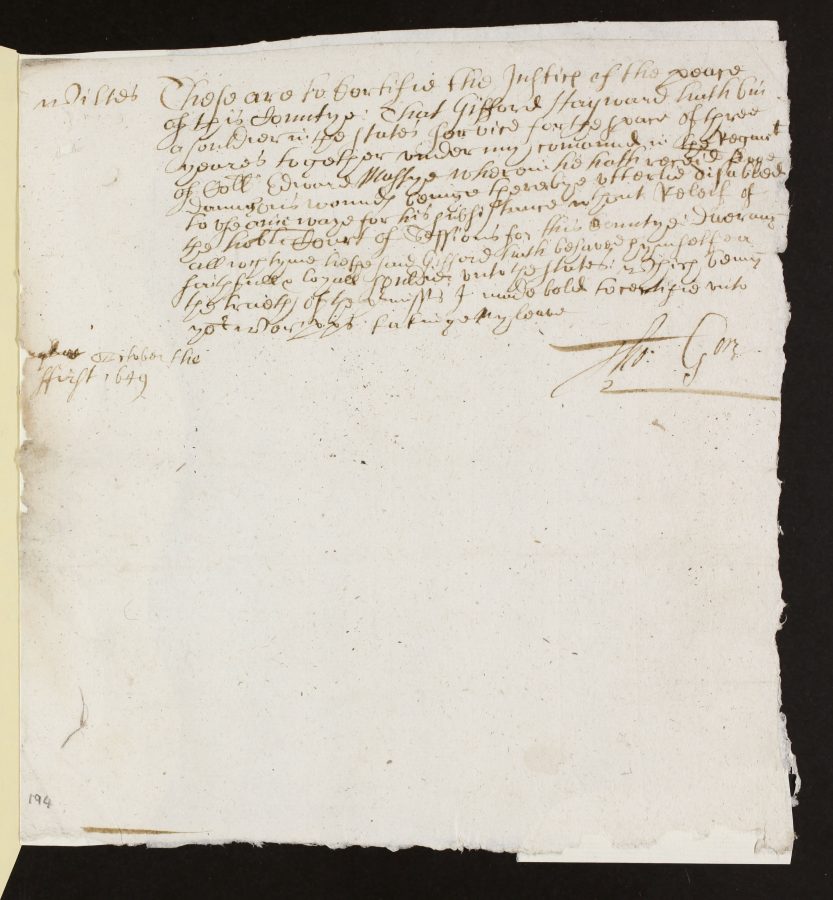 Wiltes These are to Certifie the Justice of the peace
of this Countye: That Gifford Hayward hath bin
a souldier in the States service for the space of three
yeares together under my comaund in the Regmt
of Coll Edward Massye wherein he hath receid
Daungous wounds beinge therebye utterlie disabled
to use anie waye for his subsistance without Releif of
the Noble Court of Sessions for this Countye: Dueringe
all wch tyme hee the said Gifford hath behaved himselfe a
faithfull & loyall souldier unto the states: which beinge
the trueth of the I made bold to certifie unto
yor worships takinge my leave
October the
ffirst 1649
Tho: Gore
194